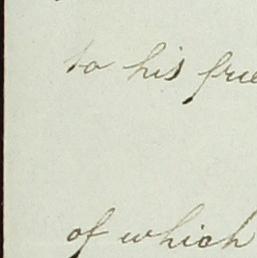 to his frie
of which